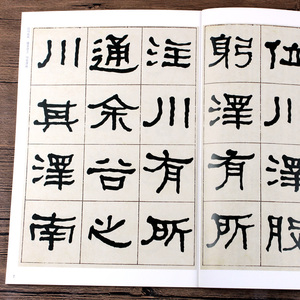 位川澤股
躬澤有所
注川有所
通余谷之
川其澤南